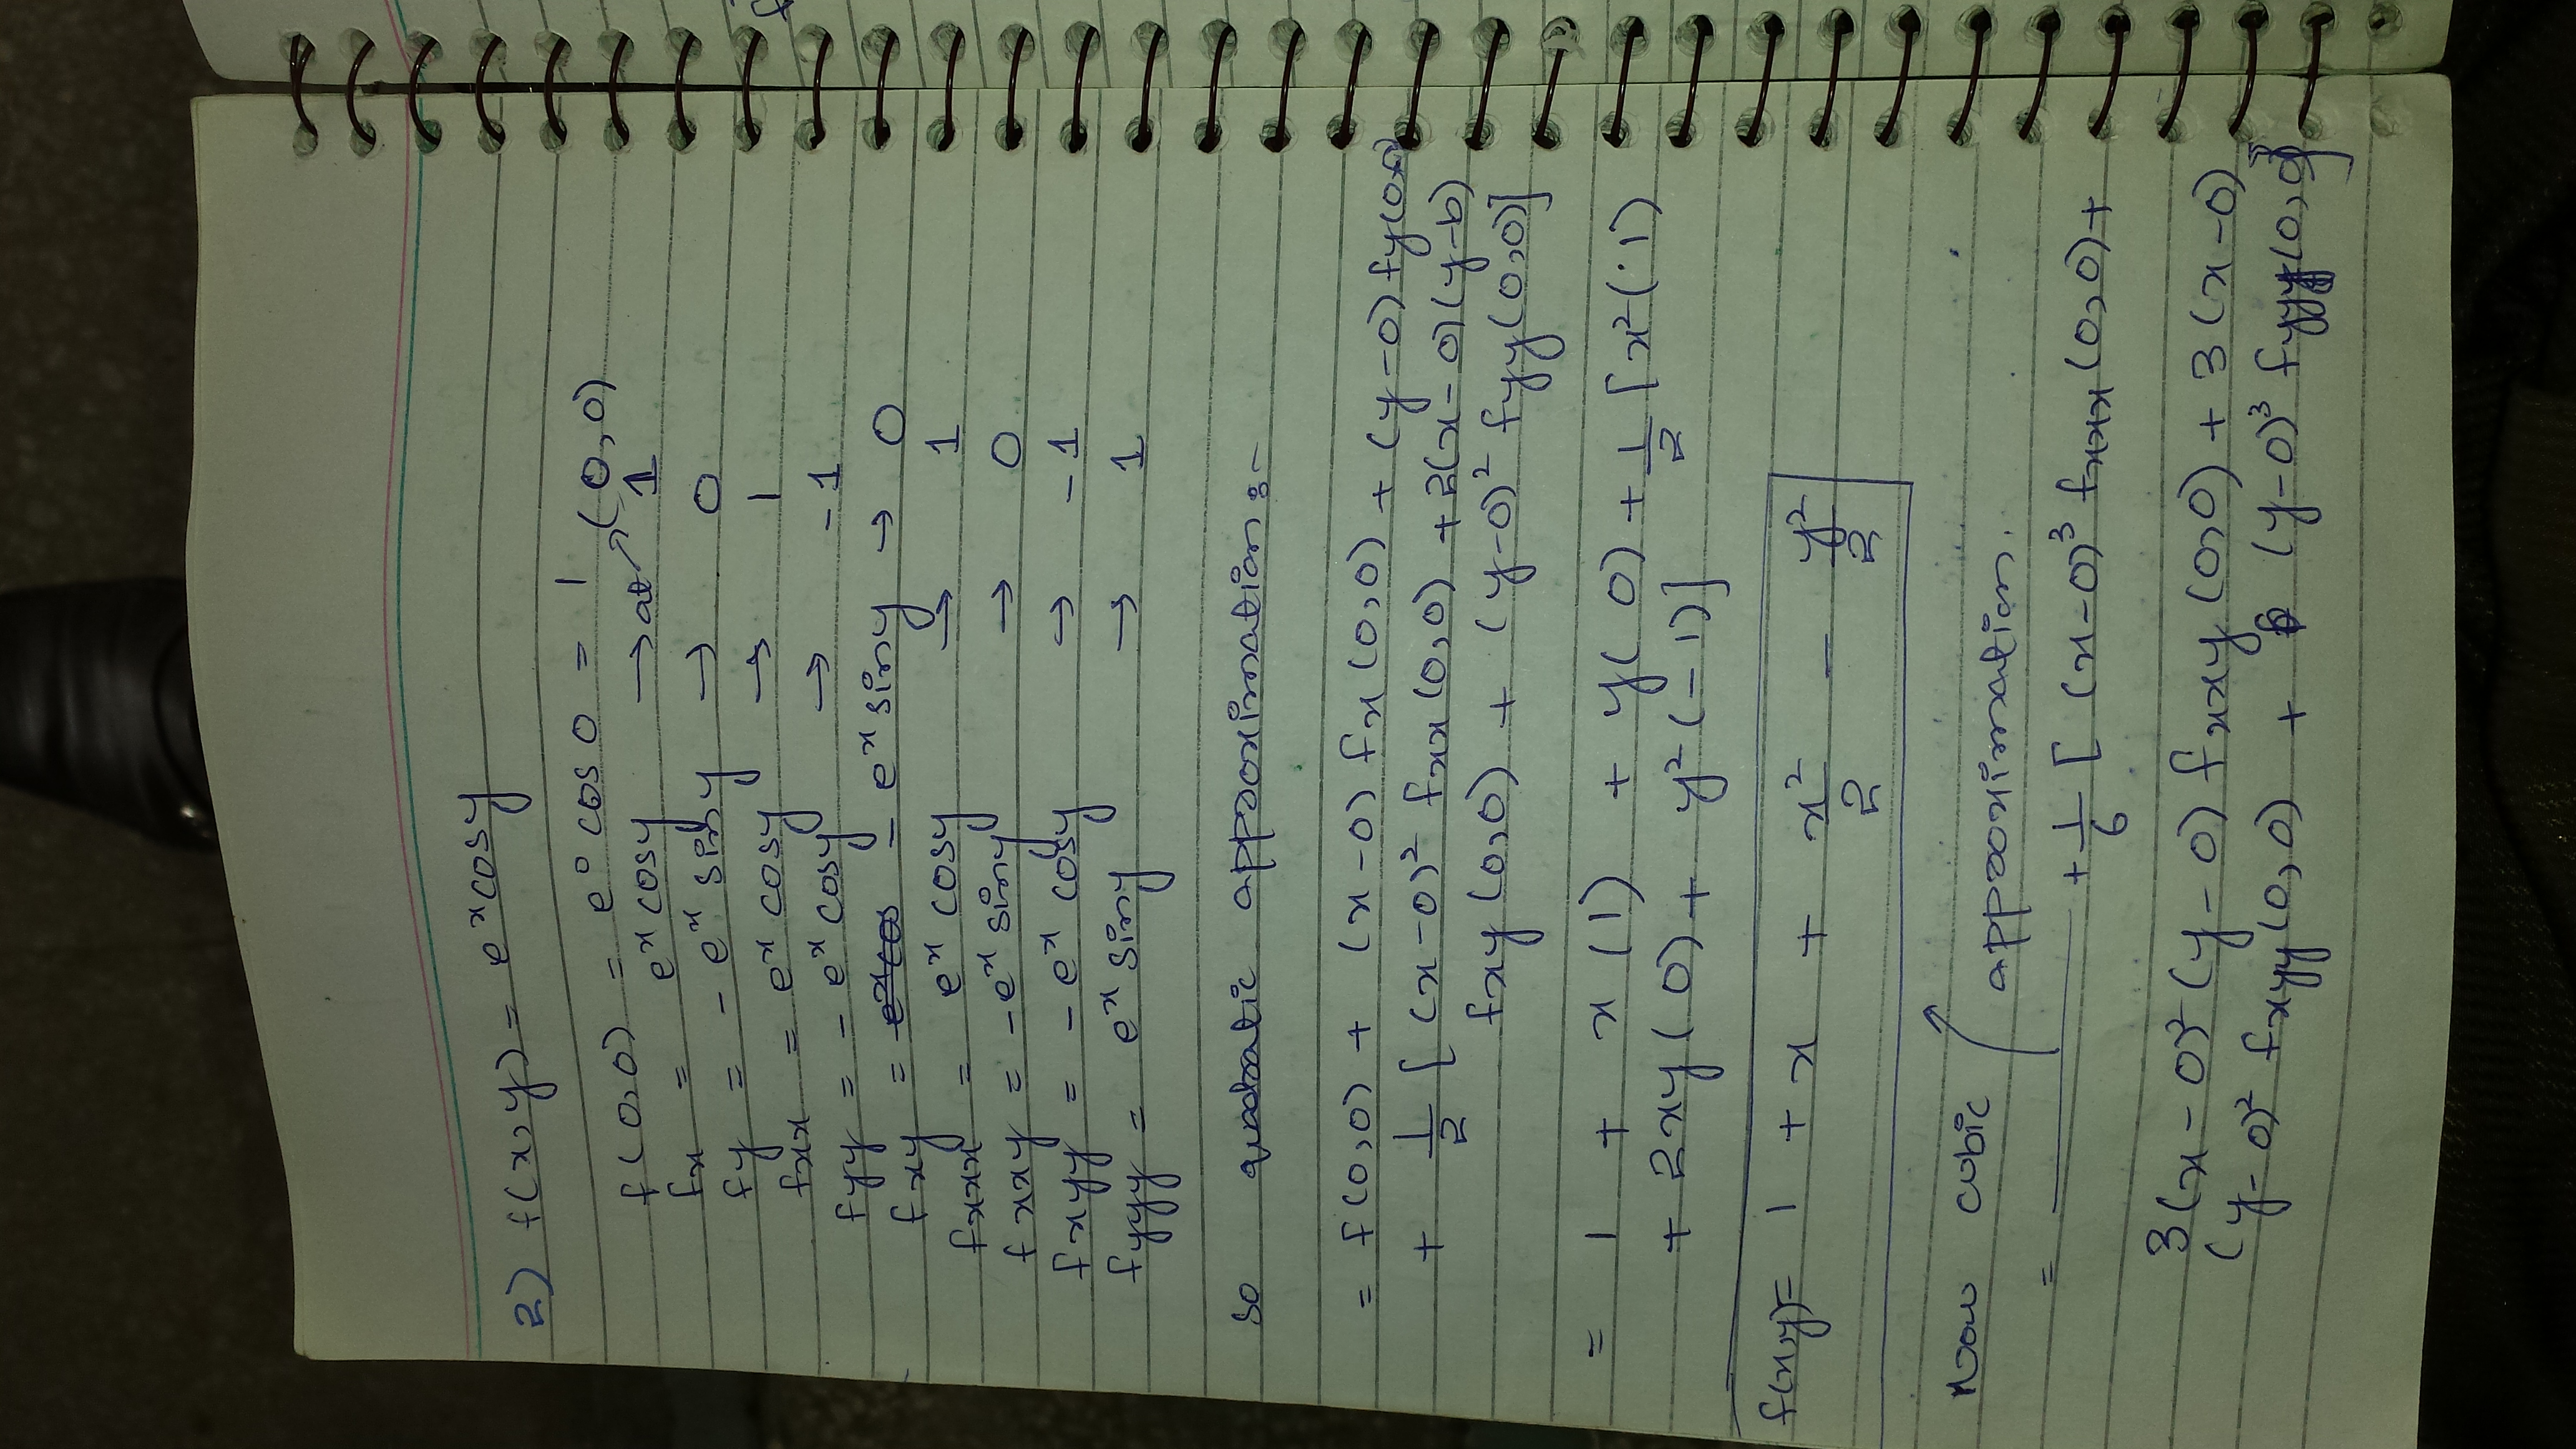 2) f(x,y) = e^x cosy
f(0,0) = e^0 cos 0 = 1
(0,0)
fx = e^x cosy → at ↗ 1
fy = - e^x siny → 0
fxx = e^x cosy → 1
fyy = - e^x cosy → -1
fxy = - e^x siny → 0
fxxx = e^x cosy → 1
fxxy = -e^x siny → 0
fxyy = - e^x cosy → -1
fyyy = e^x siny → 1
so quadratic approximation :-
= f(0,0) + (x-0) fx (0,0) + (y-0) fy(0,0)
+ 1/2 [ (x-0)² fxx (0,0) + 2(x-0)(y-b)
fxy (0,0) + (y-0)² fyy(0,0)]
= 1 + x (1) + y( 0) + 1/2 [x²(1)
+ 2xy( 0) + y² (-1)]
f(x,y)= 1 + x + x²/2 - y²/2
Now cubic approximation.
= + 1/6 [ (x-0)³ fxxx (0,0) +
3(x-0)² (y-0) fxxy (0,0) + 3 (x-0)
(y-0)² fxyy (0,0) + (y-0)³ fyyy(0,0)]